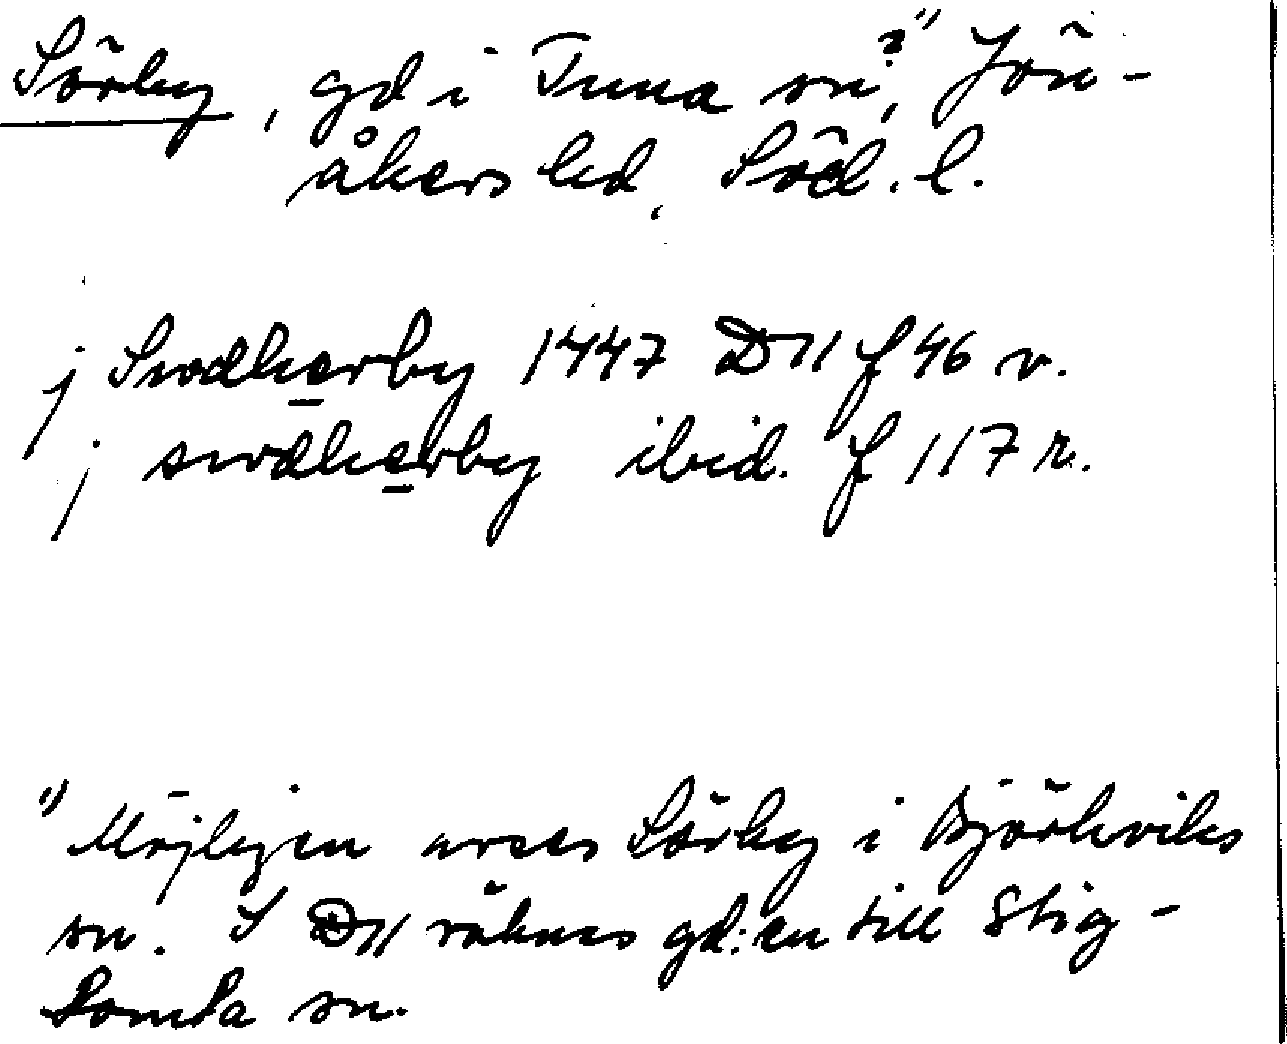 Sörby, gd i Tuna sn?¹⁾, Jön-
åkers hd, Söd. l.
j Swdherby 1447 D11 f 46 v.
j swdherby ibid. f 117 r.
¹⁾ Möjligen avses Sörby i Björkviks
sn. I D11 räknas gd:en till Stig-
tomta sn.